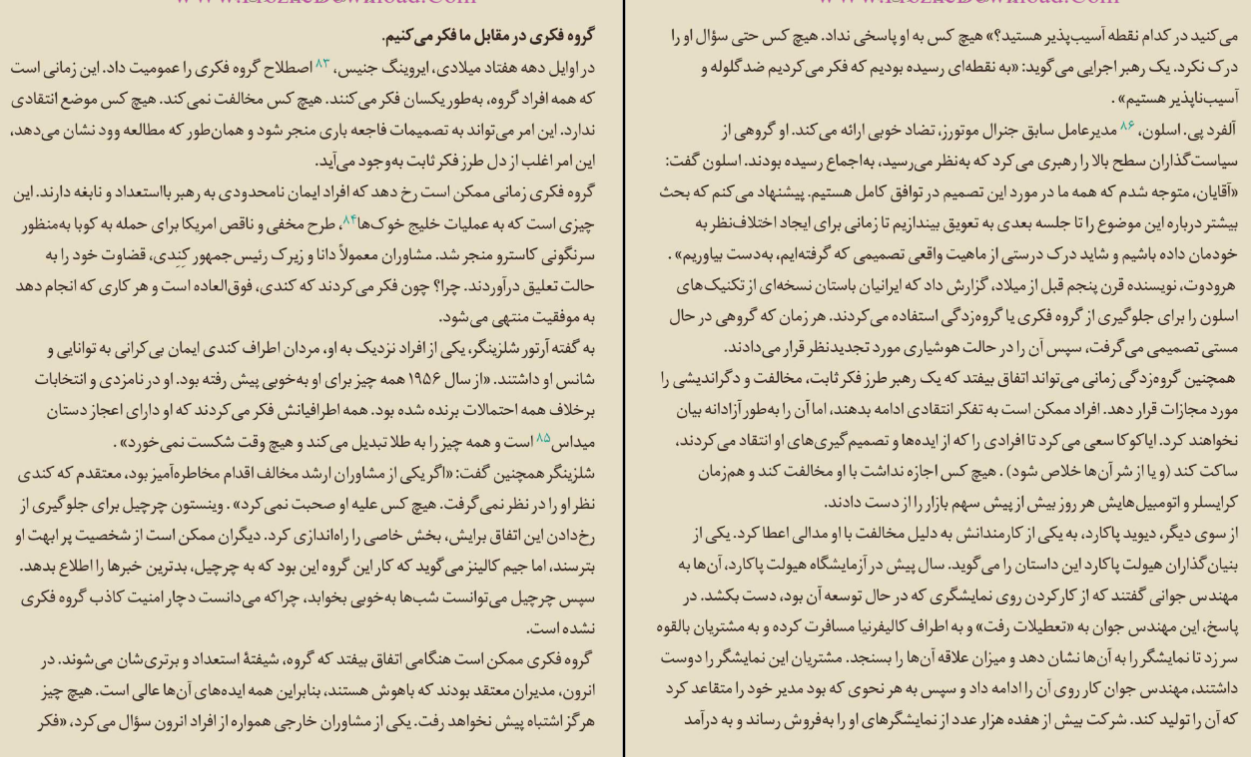 گروه فکری در مقابل ما فکر می‌کنیم.
در اوایل دهه هفتاد میلادی، ایروینگ جنیس،۸۳ اصطلاح گروه فکری را عمومیت داد. این زمانی است
که همه افراد گروه، به‌طور یکسان فکر می‌کنند. هیچ کس مخالفت نمی‌کند. هیچ کس موضع انتقادی
ندارد. این امر می‌تواند به تصمیمات فاجعه باری منجر شود و همان‌طور که مطالعه وود نشان می‌دهد،
این امر اغلب از دل طرز فکر ثابت به‌وجود می‌آید.
گروه فکری زمانی ممکن است رخ دهد که افراد ایمان نامحدودی به رهبر بااستعداد و نابغه دارند. این
چیزی است که به عملیات خلیج خوک‌ها۸۴، طرح مخفی و ناقص امریکا برای حمله به کوبا به‌منظور
سرنگونی کاسترو منجر شد. مشاوران معمولاً دانا و زیرک رئیس‌جمهور کِنِدی، قضاوت خود را به
حالت تعلیق درآوردند. چرا؟ چون فکر می‌کردند که کندی، فوق‌العاده است و هر کاری که انجام دهد
به موفقیت منتهی می‌شود.
به گفته آرتور شلزینگر، یکی از افراد نزدیک به او، مردان اطراف کندی ایمان بی‌کرانی به توانایی و
شانس او داشتند. «از سال ۱۹۵۶ همه چیز برای او به‌خوبی پیش رفته بود. او در نامزدی و انتخابات
برخلاف همه احتمالات برنده شده بود. همه اطرافیانش فکر می‌کردند که او دارای اعجاز دستان
میداس۸۵ است و همه چیز را به طلا تبدیل می‌کند و هیچ وقت شکست نمی‌خورد» .
شلزینگر همچنین گفت: «اگر یکی از مشاوران ارشد مخالف اقدام مخاطره‌آمیز بود، معتقدم که کندی
نظر او را در نظر نمی‌گرفت. هیچ کس علیه او صحبت نمی‌کرد» . وینستون چرچیل برای جلوگیری از
رخ‌دادن این اتفاق برایش، بخش خاصی را راه‌اندازی کرد. دیگران ممکن است از شخصیت پر ابهت او
بترسند، اما جیم کالینز می‌گوید که کار این گروه این بود که به چرچیل، بدترین خبرها را اطلاع بدهد.
سپس چرچیل می‌توانست شب‌ها به‌خوبی بخوابد، چراکه می‌دانست دچار امنیت کاذب گروه فکری
نشده است.
گروه فکری ممکن است هنگامی اتفاق بیفتد که گروه، شیفتهٔ استعداد و برتری‌شان می‌شوند. در
انرون، مدیران معتقد بودند که باهوش هستند، بنابراین همه ایده‌های آن‌ها عالی است. هیچ چیز
هرگز اشتباه پیش نخواهد رفت. یکی از مشاوران خارجی همواره از افراد انرون سؤال می‌کرد، «فکر
می‌کنید در کدام نقطه آسیب‌پذیر هستید؟» هیچ کس به او پاسخی نداد. هیچ کس حتی سؤال او را
درک نکرد. یک رهبر اجرایی می‌گوید: «به نقطه‌ای رسیده بودیم که فکر می‌کردیم ضد گلوله و
آسیب‌ناپذیر هستیم» .
آلفرد پی. اسلون،۸۶ مدیرعامل سابق جنرال موتورز، تضاد خوبی ارائه می‌کند. او گروهی از
سیاست‌گذاران سطح بالا را رهبری می‌کرد که به‌نظر می‌رسید، به‌اجماع رسیده بودند. اسلون گفت:
«آقایان، متوجه شدم که همه ما در مورد این تصمیم در توافق کامل هستیم. پیشنهاد می‌کنم که بحث
بیشتر درباره این موضوع را تا جلسه بعدی به تعویق بیندازیم تا زمانی برای ایجاد اختلاف‌نظر به
خودمان داده باشیم و شاید درک درستی از ماهیت واقعی تصمیمی که گرفته‌ایم، به‌دست بیاوریم» .
هرودوت، نویسنده قرن پنجم قبل از میلاد، گزارش داد که ایرانیان باستان نسخه‌ای از تکنیک‌های
اسلون را برای جلوگیری از گروه فکری یا گروه‌زدگی استفاده می‌کردند. هر زمان که گروهی در حال
مستی تصمیمی می‌گرفت، سپس آن را در حالت هوشیاری مورد تجدیدنظر قرار می‌دادند.
همچنین گروه‌زدگی زمانی می‌تواند اتفاق بیفتد که یک رهبر طرز فکر ثابت، مخالفت و دگراندیشی را
مورد مجازات قرار دهد. افراد ممکن است به تفکر انتقادی ادامه بدهند، اما آن را به‌طور آزادانه بیان
نخواهند کرد. ایاکوکا سعی می‌کرد تا افرادی را که از ایده‌ها و تصمیم‌گیری‌های او انتقاد می‌کردند،
ساکت کند (و یا از شر آن‌ها خلاص شود) . هیچ کس اجازه نداشت با او مخالفت کند و هم‌زمان
کرایسلر و اتومبیل‌هایش هر روز بیش از پیش سهم بازار را از دست دادند.
از سوی دیگر، دیوید پاکارد، به یکی از کارمندانش به دلیل مخالفت با او مدالی اعطا کرد. یکی از
بنیان‌گذاران هیولت پاکارد این داستان را می‌گوید. سال پیش در آزمایشگاه هیولت پاکارد، آن‌ها به
مهندس جوانی گفتند که از کارکردن روی نمایشگری که در حال توسعه آن بود، دست بکشد. در
پاسخ، این مهندس جوان به «تعطیلات رفت» و به اطراف کالیفرنیا مسافرت کرده و به مشتریان بالقوه
سر زد تا نمایشگر را به آن‌ها نشان دهد و میزان علاقه آن‌ها را بسنجد. مشتریان این نمایشگر را دوست
داشتند، مهندس جوان کار روی آن را ادامه داد و سپس به هر نحوی که بود مدیر خود را متقاعد کرد
که آن را تولید کند. شرکت بیش از هفده هزار عدد از نمایشگرهای او را به‌فروش رساند و به درآمد